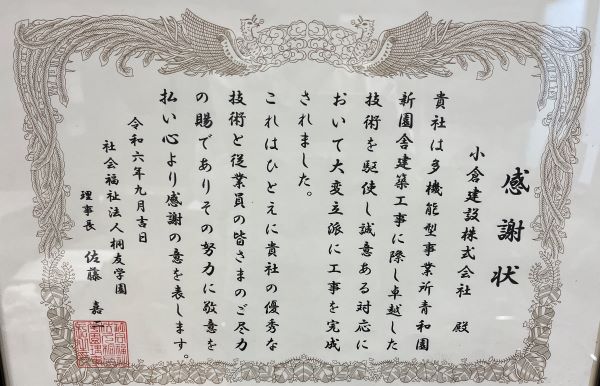 感謝状
小倉建設株式会社 殿
貴社は多機能型事業所青和園
新園舎建築工事に際し卓越した
技術を駆使し誠意ある対応に
おいて大変立派に工事を完成
されました。
これはひとえに貴社の優秀な
技術と従業員の皆さまのご尽力
の賜でありその努力に敬意を
払い心より感謝の意を表します。
令和六年九月吉日
社会福祉法人桐友学園
理事長 佐藤 嘉